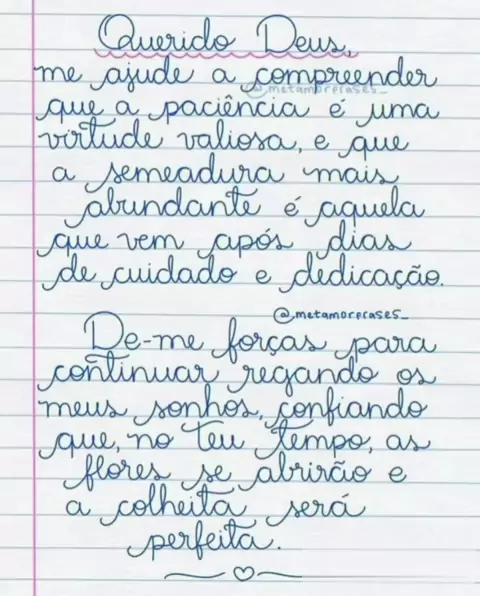 Querido Deus,
me ajude a compreender
@metamorfrases_
que a paciência é uma
virtude valiosa, e que
a semeadura mais
abundante é aquela
que vem após dias
de cuidado e dedicação.
@metamorfrases_
De-me forças para
continuar regando os
meus sonhos, confiando
que, no teu tempo, as
flores se abrirão e
a colheita será
perfeita.